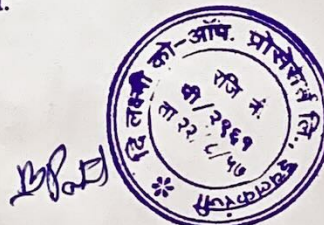 दि लक्ष्मी को-ऑप. प्रोसेसर्स लि., इचलकरंजी
रजि नं.
बी/२९६१
ता २२. ८/५७